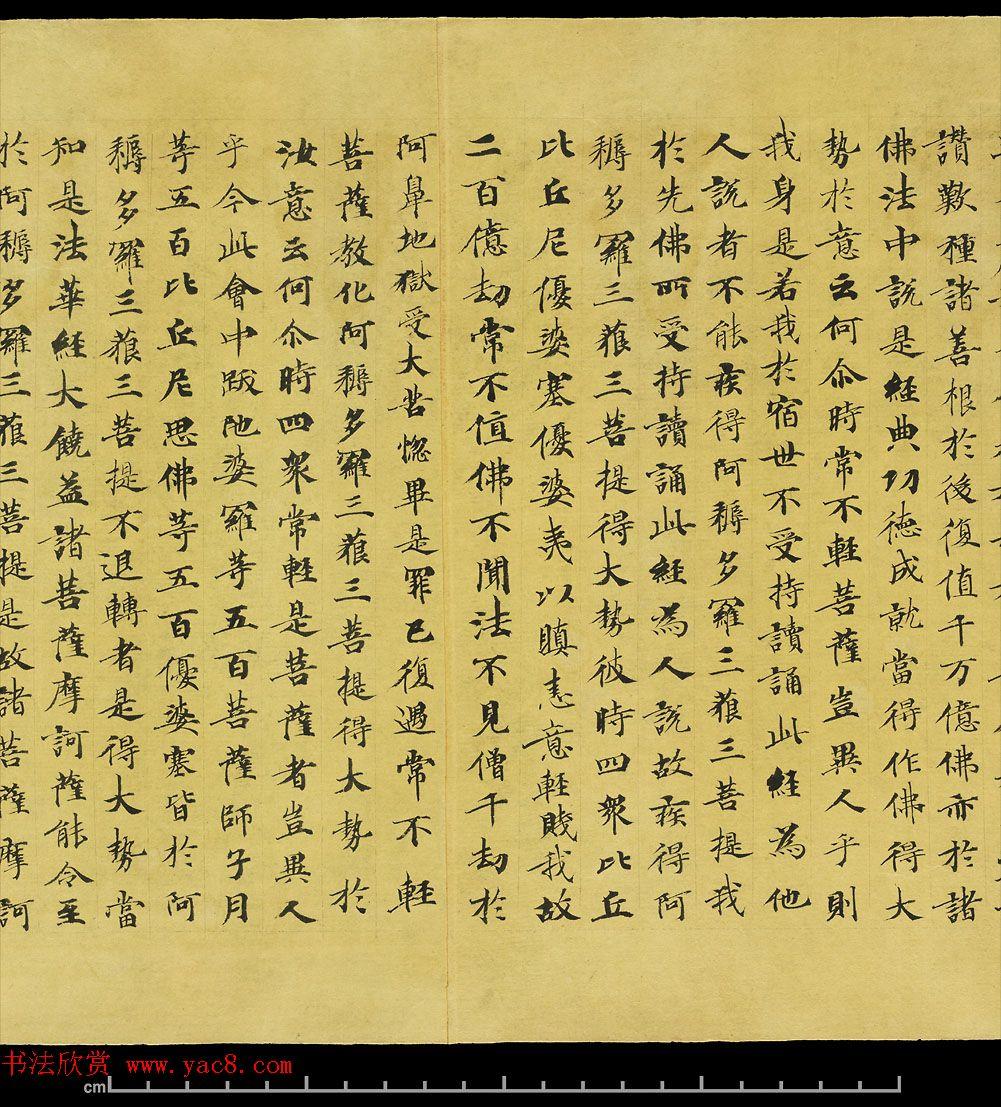 讚歎種諸善根於後復值千万億佛亦於諸
佛法中說是經典功德成就當得作佛得大
勢於意云何尒時常不輕菩薩豈異人乎則
我身是若我於宿世不受持讀誦此經為他
人說者不能疾得阿耨多羅三藐三菩提我
於先佛所受持讀誦此經為人說故疾得阿
耨多羅三藐三菩提得大勢彼時四眾比丘
比丘尼優婆塞優婆夷以瞋恚意輕賤我故
二百億劫常不值佛不聞法不見僧千劫於
阿鼻地獄受大苦惱畢是罪已復遇常不輕
菩薩教化阿耨多羅三藐三菩提得大勢於
汝意云何尒時四眾常輕是菩薩者豈異人
乎今此會中跋陁婆羅等五百菩薩師子月
等五百比丘尼思佛等五百優婆塞皆於阿
耨多羅三藐三菩提不退轉者是得大勢當
知是法華經大饒益諸菩薩摩訶薩能令至
於阿耨多羅三藐三菩提是故諸菩薩摩訶
书法欣赏 www.yac8.com
cm